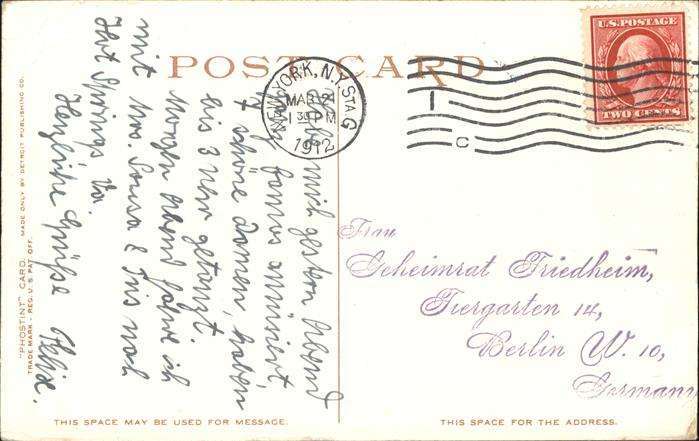 POST CARD
U.S. POSTAGE
TWO CENTS
NEW YORK, N.Y. STA. G
MAR 24
1 30 PM
1912
C
mich gestern Abend
famos amüsiert
7 schöne Damen, haben
bis 3 Uhr getanzt.
Morgen Abend fahre ich
mit Mrs. Sousa & Tris nach
Hot Springs Va.
Herzliche Grüße
Frau
Geheimrat Friedheim,
Tiergarten 14,
Berlin W. 10,
Germany
"PHOSTINT" CARD. MADE ONLY BY DETROIT PUBLISHING CO.
TRADE MARK - REG. U.S. PAT. OFF.
THIS SPACE MAY BE USED FOR MESSAGE.
THIS SPACE FOR THE ADDRESS.